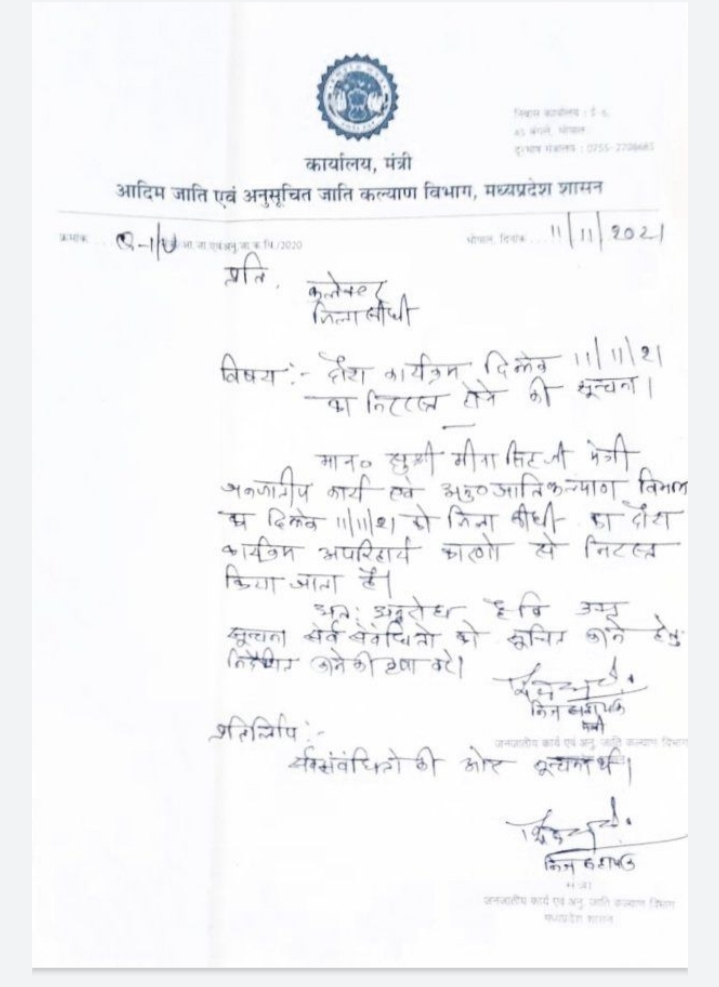 निवास कार्यालय : ई-5,
45 बंगले, भोपाल
दूरभाष मंत्रालय : 0755-2708683
कार्यालय, मंत्री
आदिम जाति एवं अनुसूचित जाति कल्याण विभाग, मध्यप्रदेश शासन
क्रमांक ... आ.जा.एवं अनु.जा.क.वि./2020 भोपाल, दिनांक ... 11/11/2021
प्रति,
कलेक्टर
जिला सीधी
विषय :- दौरा कार्यक्रम दिनांक 11/11/21
का निरस्त होने की सूचना।
मान० सुश्री मीना सिंह जी मंत्री
जनजातीय कार्य एवं अनु० जाति कल्याण विभाग
का दिनांक 11/11/21 को जिला सीधी का दौरा
कार्यक्रम अपरिहार्य कारणों से निरस्त
किया जाता है।
अतः अनुरोध है कि उक्त
सूचना सर्व संबंधितों को सूचित करने हेतु
निर्देशित करने की कृपा करें।
निज सहायक
मंत्री
जनजातीय कार्य एवं अनु. जाति कल्याण विभाग
प्रतिलिपि :-
सर्व संबंधितों की ओर सूचनार्थ।
निज सहायक
मंत्री
जनजातीय कार्य एवं अनु. जाति कल्याण विभाग
मध्यप्रदेश शासन